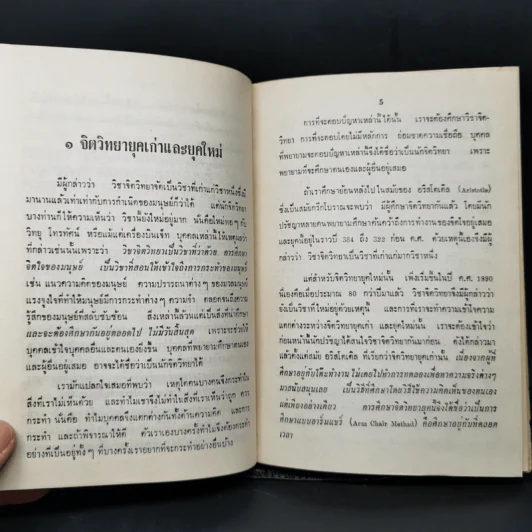 ๑ จิตวิทยายุคเก่าและยุคใหม่
มีผู้กล่าวว่า วิชาจิตวิทยาจัดเป็นวิชาที่เก่าแก่วิชาหนึ่งซึ่งมี
มานานแล้วเท่าเท่ากับการกำเนิดของมนุษย์ก็ว่าได้ แต่นักจิตวิทยา
บางท่านก็ให้ความเห็นว่า วิชานี้ยังใหม่อยู่มาก นั่นคือใหม่พอๆ กับ
วิทยุ โทรทัศน์ หรือแม้แต่เครื่องบินเจ๊ท บุคคลเหล่านี้ให้เหตุผลว่า
ที่กล่าวเช่นนั้นเพราะว่า วิชาจิตวิทยาเป็นวิชาที่ว่าด้วย การศึกษา
จิตใจของมนุษย์ เป็นวิชาที่สอนให้เข้าใจถึงการกระทำของมนุษย์
เช่น แนวความคิดของมนุษย์ ความปรารถนาต่างๆ ของมวลมนุษย์
แรงจูงใจที่ทำให้มนุษย์มีการกระทำต่างๆ ความจำ ตลอดจนถึงความ
รู้สึกของมนุษย์ที่สลับซับซ้อน สิ่งเหล่านี้ล้วนแต่เป็นสิ่งที่น่าศึกษา
และจะต้องศึกษากันอยู่ตลอดไป ไม่มีวันสิ้นสุด เพราะจะช่วยให้
บุคคลเข้าใจบุคคลอื่นและตนเองยิ่งขึ้น บุคคลที่พยายามศึกษาตนเอง
และผู้อื่นอยู่เสมอ อาจจะได้ชื่อว่าเป็นนักจิตวิทยาได้
เรามักแปลกใจเสมอที่พบว่า เหตุใดคนบางคนจึงกระทำใน
สิ่งที่เราไม่เห็นด้วย และทำไมเราจึงไม่ทำในสิ่งที่เราเห็นว่าถูก ควร
กระทำ นั่นคือ ทำไมบุคคลจึงแตกต่างกันทั้งด้านความคิด และการ
กระทำ และถ้าพิจารณาให้ดี ตัวเราเองบางครั้งทำไมจึงต้องกระทำ
อย่างที่เป็นอยู่ทั้งๆ ที่บางครั้งเราอยากที่จะกระทำอย่างอื่นบ้าง
5
การที่จะตอบปัญหาเหล่านี้ได้นั้น เราจะต้องศึกษาวิชาจิต-
วิทยา การที่จะตอบโดยไม่มีหลักการ ย่อมขาดความเชื่อถือ บุคคล
ที่พยายามจะตอบปัญหาเหล่านี้จึงได้ชื่อว่าเป็นนักจิตวิทยา เพราะ
พยายามที่จะศึกษาตนเองและผู้อื่นอยู่เสมอ
ถ้าเราศึกษาย้อนหลังไปในสมัยของ อริสโตเติล (Aristotle)
ซึ่งเป็นสมัยกรีกโบราณจะพบว่า มีผู้ศึกษาจิตวิทยากันแล้ว โดยมีนัก
ปรัชญาหลายคนพยายามศึกษาค้นคว้าถึงการทำงานของจิตใจอยู่เสมอ
และยุคนั้นอยู่ในราวปี 384 ถึง 322 ก่อน ค.ศ. ด้วยเหตุนี้เองจึงมีผู้
กล่าวว่า วิชาจิตวิทยาเป็นวิชาที่เก่าแก่มากวิชาหนึ่ง
แต่สำหรับจิตวิทยายุคใหม่นั้น เพิ่งเริ่มขึ้นในปี ค.ศ.
นี่เองคือเมื่อประมาณ 80 กว่าปีมาแล้ว วิชาจิตวิทยาจึงมีผู้กล่าวว่า
ยังเป็นวิชาที่ใหม่อยู่ด้วยเหตุนี้ และการที่เราจะทำความเข้าใจความ
แตกต่างระหว่างจิตวิทยายุคเก่า และยุคใหม่นั้น เราจะต้องเข้าใจว่า
ก่อนหน้านี้นักปรัชญาได้สนใจวิชาจิตวิทยากันมาก่อน ดังได้กล่าวมา
แล้วตั้งแต่สมัย อริสโตเติล ที่เรียกว่าจิตวิทยายุคเก่านั้น เนื่องจากผู้ที่
ศึกษาอยู่กับโต๊ะทำงาน ไม่เคยไปทำการทดลองเพื่อหาความจริงต่างๆ
มาสนับสนุนเลย เป็นวิธีที่ศึกษาโดยวิธีใช้ความคิดเห็นของตนเอง
แต่เพียงอย่างเดียว การศึกษาจิตวิทยายุคนี้จึงได้ชื่อว่าเป็นการ
ศึกษาแบบอาร์มแชร์ (Arm Chair Method) คือศึกษาอยู่กับที่ตลอด
เวลา